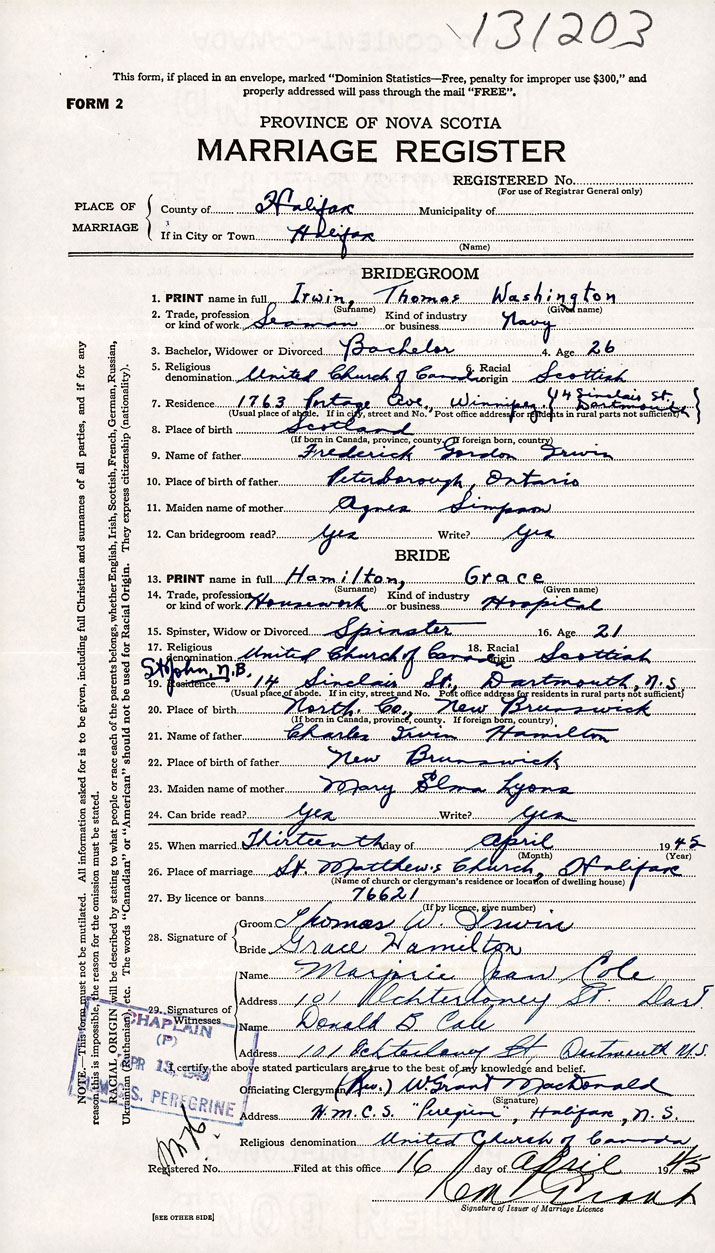 131203
This form, if placed in an envelope, marked "Dominion Statistics—Free, penalty for improper use $300," and
properly addressed will pass through the mail "FREE".
FORM 2
PROVINCE OF NOVA SCOTIA
MARRIAGE REGISTER
REGISTERED No.
(For use of Registrar General only)
PLACE OF MARRIAGE
County of Halifax Municipality of
If in City or Town Halifax
(Name)
BRIDEGROOM
1. PRINT name in full Irwin, Thomas Washington
(Surname) (Given name)
2. Trade, profession or kind of work Seaman Kind of industry or business Navy
3. Bachelor, Widower or Divorced Bachelor 4. Age 26
5. Religious denomination United Church of Canada 6. Racial origin Scottish
7. Residence 1763 Portage Ave., Winnipeg. (14 Sinclair St. Dartmouth)
(Usual place of abode. If in city, street and No. Post office address for residents in rural parts not sufficient)
8. Place of birth Scotland
(If born in Canada, province, county. If foreign born, country)
9. Name of father Frederick Gordon Irwin
10. Place of birth of father Peterborough, Ontario
11. Maiden name of mother Agnes Simpson
12. Can bridegroom read? Yes Write? Yes
BRIDE
13. PRINT name in full Hamilton, Grace
(Surname) (Given name)
14. Trade, profession or kind of work Housework Kind of industry or business Hospital
15. Spinster, Widow or Divorced Spinster 16. Age 21
17. Religious denomination United Church of Canada 18. Racial origin Scottish
St. John, N.B.
19. Residence 14 Sinclair St., Dartmouth, N.S.
(Usual place of abode. If in city, street and No. Post office address for residents in rural parts not sufficient)
20. Place of birth North. Co., New Brunswick
(If born in Canada, province, county. If foreign born, country)
21. Name of father Charles Irwin Hamilton
22. Place of birth of father New Brunswick
23. Maiden name of mother Mary Elma Lyons
24. Can bride read? Yes Write? Yes
25. When married Thirteenth day of April 1945
(Month) (Year)
26. Place of marriage St. Matthew's Church, Halifax
(Name of church or clergyman's residence or location of dwelling house)
27. By licence or banns 76621
(If by licence, give number)
28. Signature of
Groom Thomas W. Irwin
Bride Grace Hamilton
29. Signatures of Witnesses
Name Marjorie Jean Cole
Address 101 Ochterloney St. Dart.
Name Donald B Cole
Address 101 Ochterloney St Dartmouth N.S.
I certify the above stated particulars are true to the best of my knowledge and belief.
Officiating Clergyman (Rev.) W Grant MacDonald
(Signature)
Address H.M.C.S. "Peregrine", Halifax, N.S.
Religious denomination United Church of Canada
Registered No. Filed at this office 16 day of April 1945
Signature of Issuer of Marriage Licence
[SEE OTHER SIDE]
NOTE.—This form must not be mutilated. All information asked for is to be given, including full Christian and surnames of all parties, and if for any
reason this is impossible, the reason for the omission must be stated.
RACIAL ORIGIN will be described by stating to what people or race each of the parents belongs, whether English, Irish, Scottish, French, German, Russian,
Ukrainian (Ruthenian), etc. The words "Canadian" or "American" should not be used for Racial Origin. They express citizenship (nationality).
CHAPLAIN
(P)
APR 13 1945
H.M.C.S. PEREGRINE